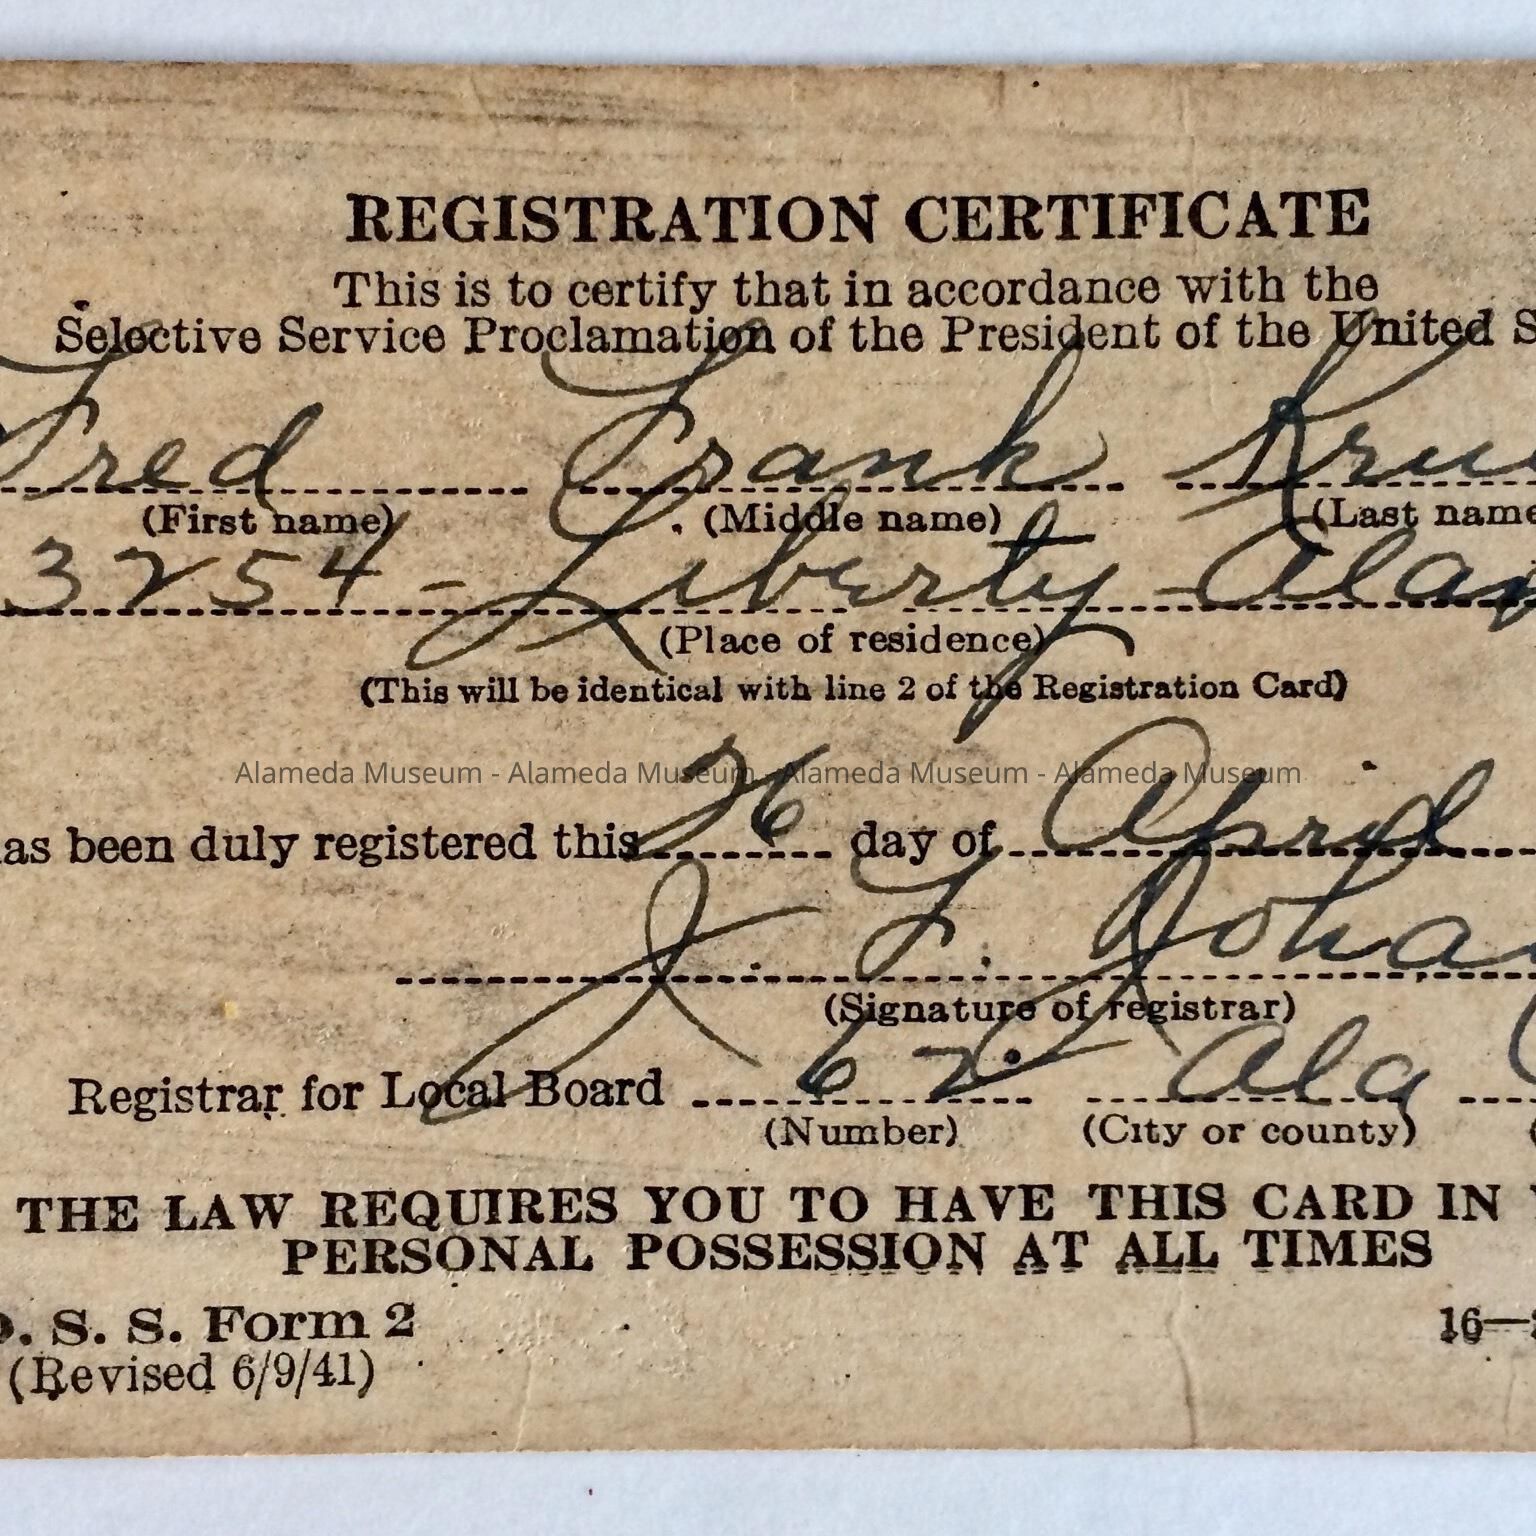 REGISTRATION CERTIFICATE
This is to certify that in accordance with the
Selective Service Proclamation of the President of the United S
Fred Frank Kru
(First name) (Middle name) (Last name
3254 - Liberty - Alam
(Place of residence)
(This will be identical with line 2 of the Registration Card)
Alameda Museum - Alameda Museum - Alameda Museum - Alameda Museum
as been duly registered this 26 day of April
J. F. Joha
(Signature of registrar)
Registrar for Local Board 62 Ala
(Number) (City or county) (
THE LAW REQUIRES YOU TO HAVE THIS CARD IN Y
PERSONAL POSSESSION AT ALL TIMES
D. S. S. Form 2 16—
(Revised 6/9/41)